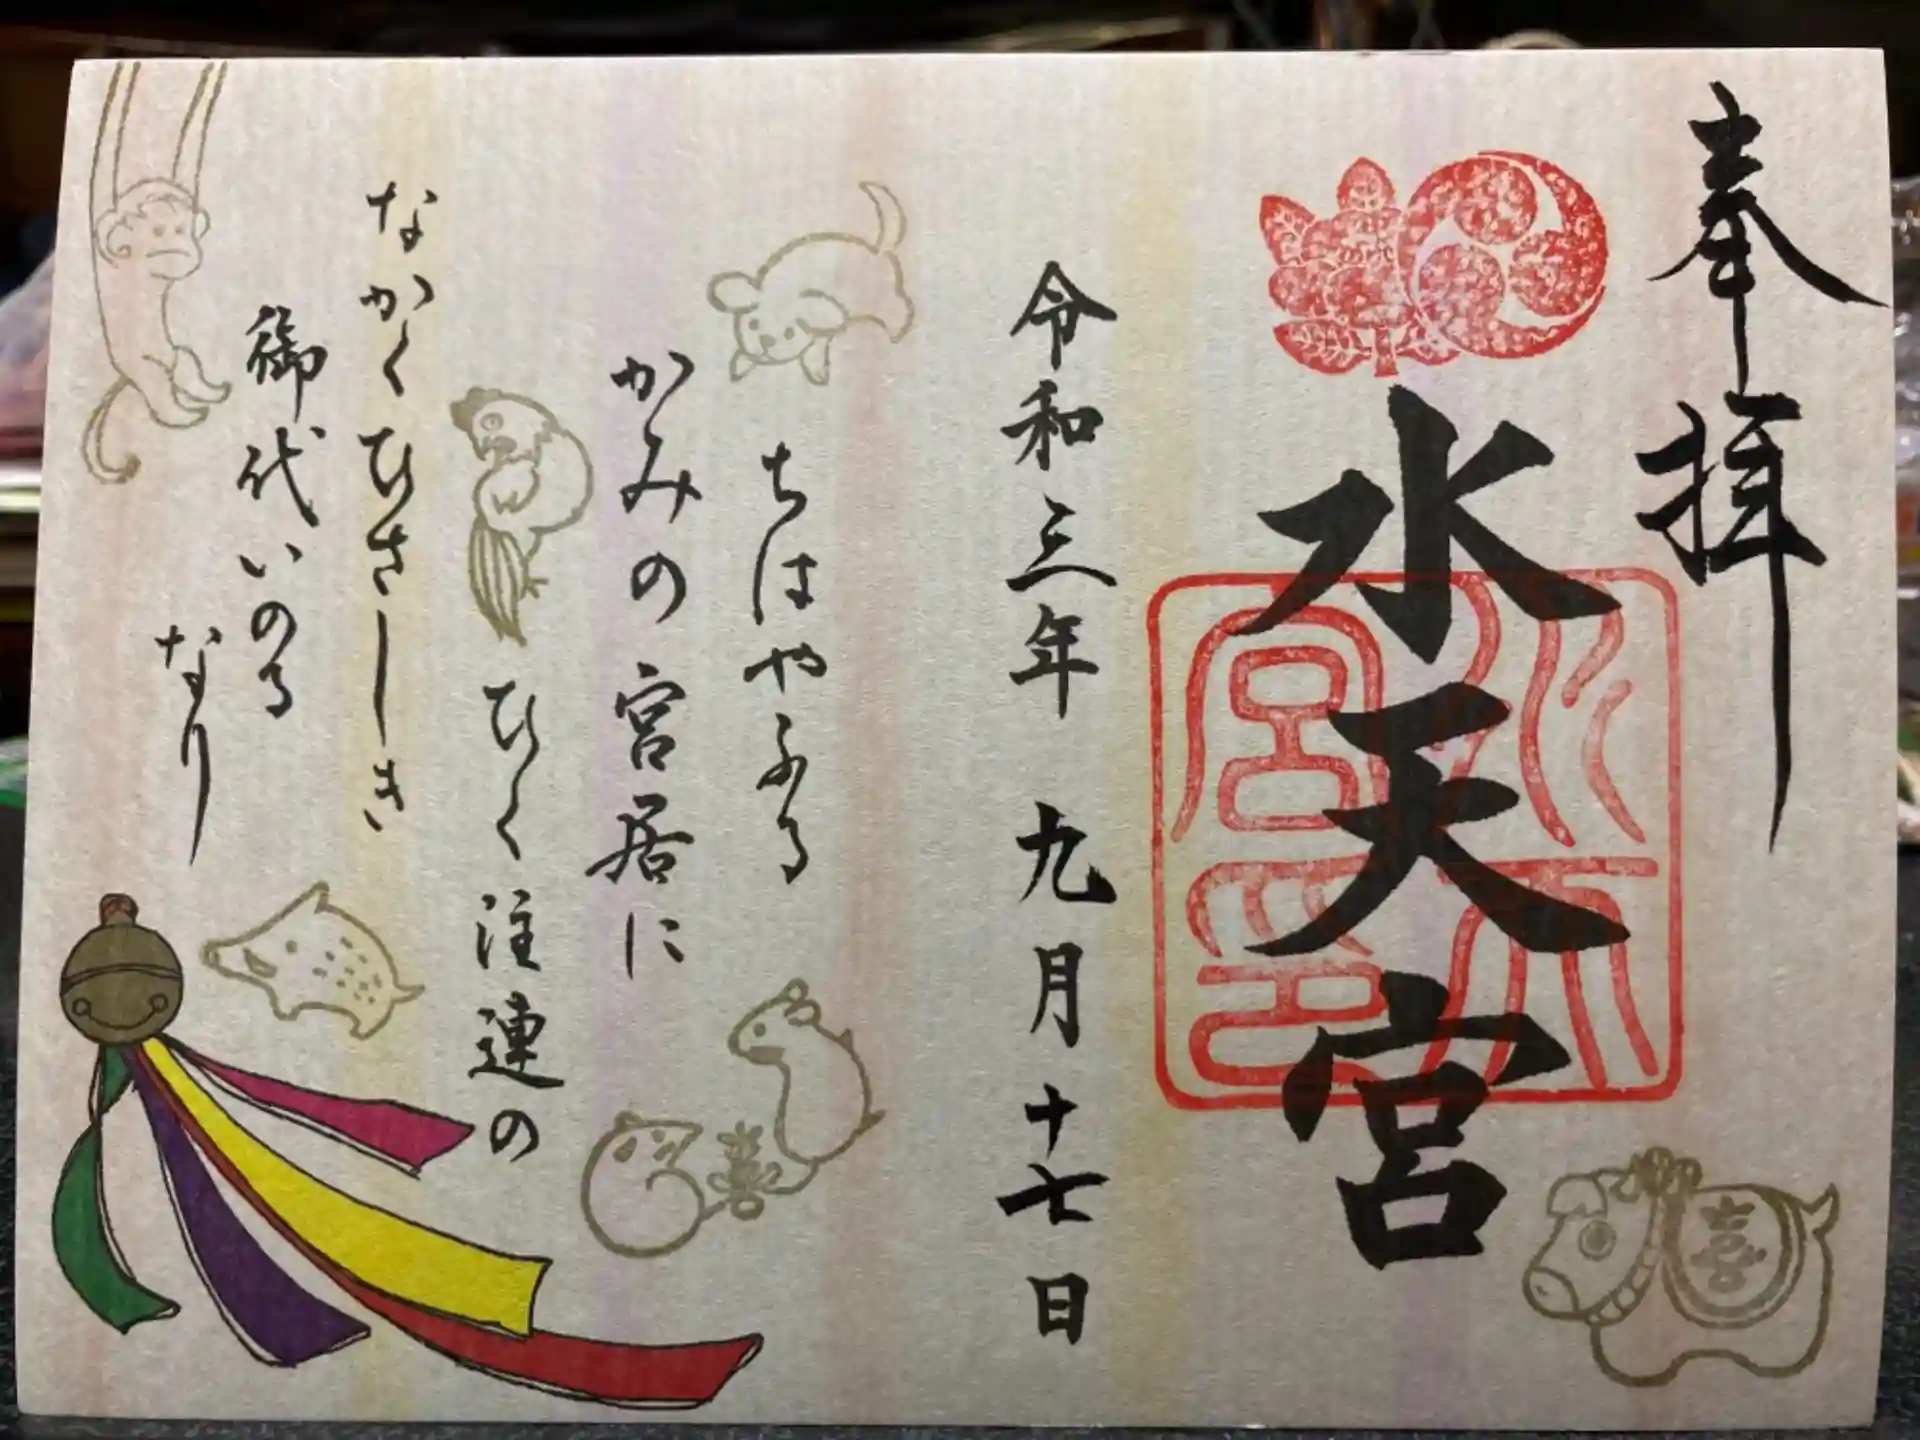 奉拝
水天宮
水天宮印
令和三年 九月十七日
ちはやふる
かみの宮居に
ひく注連の
なかくひさしき
御代いのる
なり
喜
喜